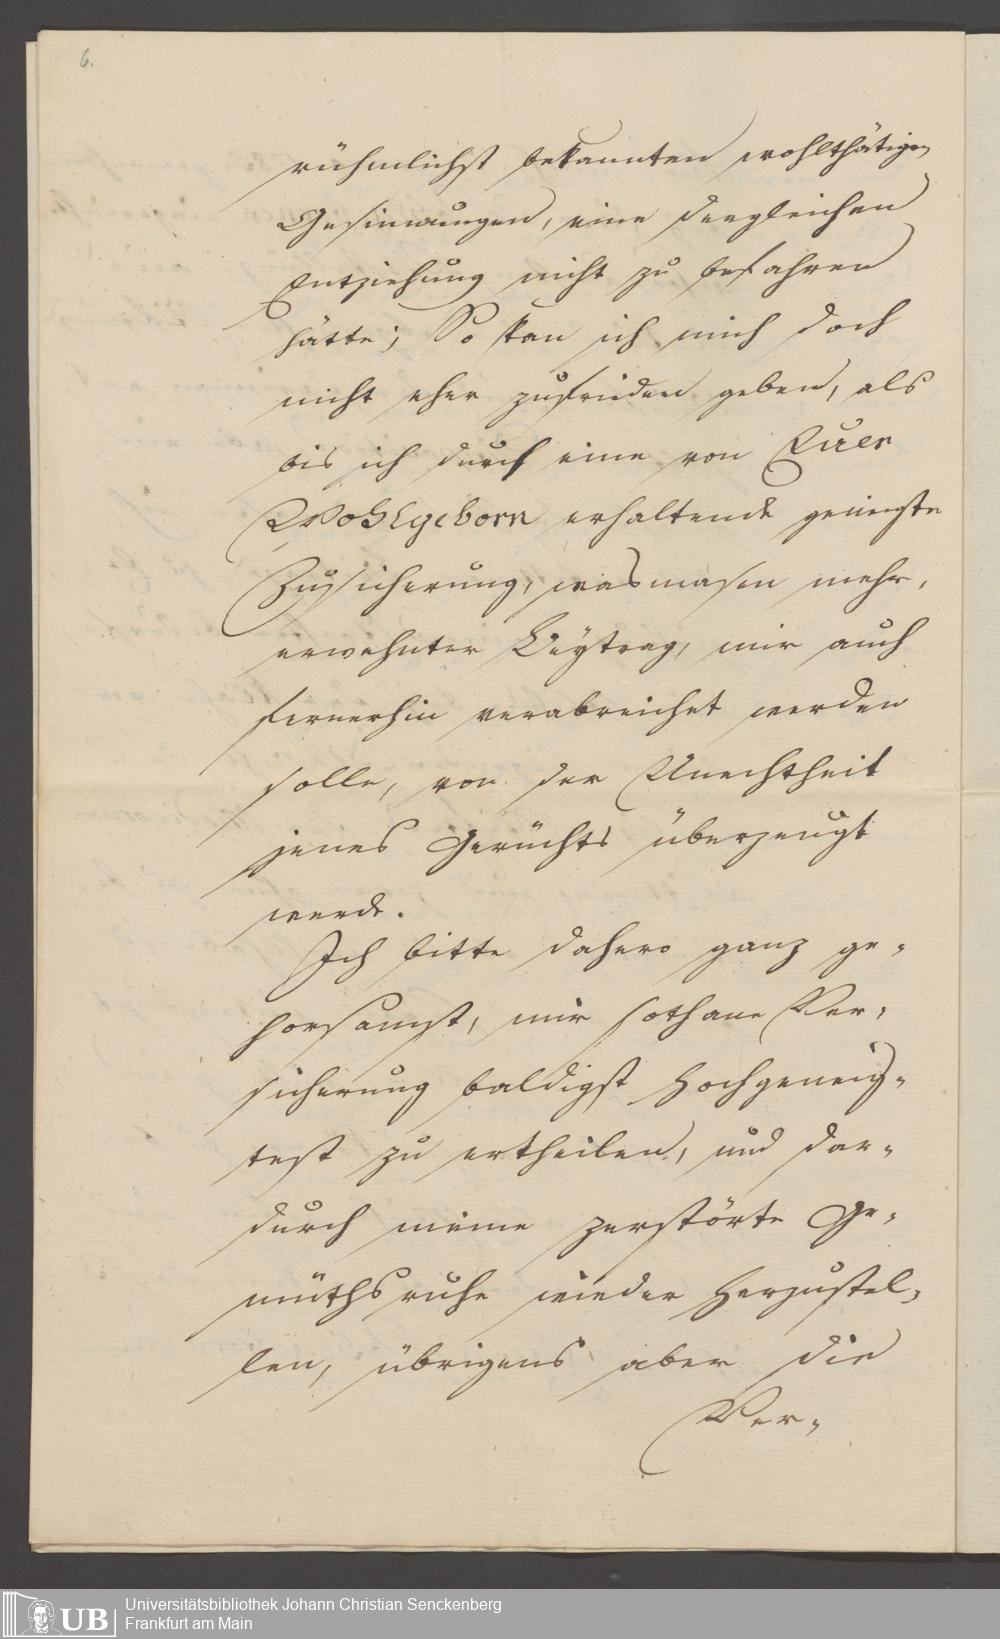 6.
rühmlichst bekannten wohlthätigen
Gesinnungen, eine dergleichen
Entziehung nicht zu befahren
hätte; So kan ich mich doch
nicht eher zufrieden geben, als
bis ich durch eine von Euer
Wohlgeborn erhaltende geneigte
Zusicherung, wasmasen mehr,
erwehnter Beytrag, mir auch
fernerhin verabreichet werden
solle, von der Unechtheit
jenes Gerüchts überzeugt
werde.
Ich bitte dahero ganz ge-
horsamst, mir sothane Ver-
sicherung baldigst hochgeneig-
test zu ertheilen, und dar-
durch meine zerstörte Ge-
müthsruhe wieder herzustel-
len, übrigens aber die
Ver-
UB
Universitätsbibliothek Johann Christian Senckenberg
Frankfurt am Main